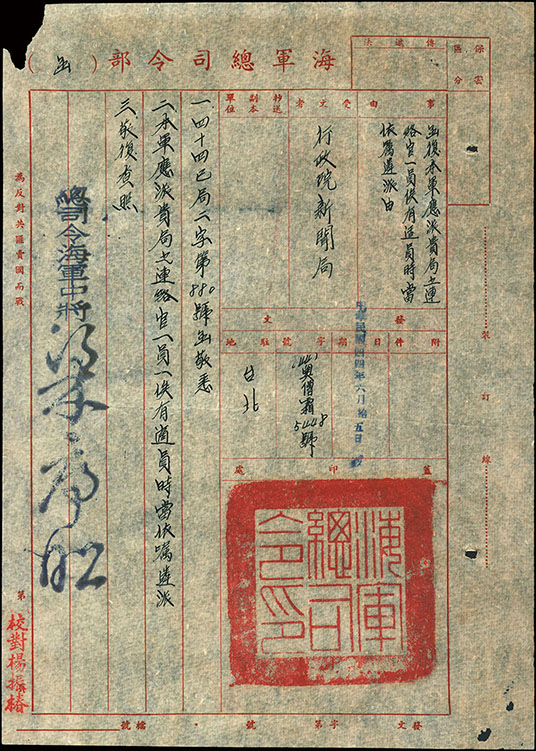 海軍總司令部(函)
傳遞法
保密
區分
事由
函復本軍應派貴局之連
絡官一員俟有適員時當
依囑遴派由
受文者
行政院新聞局
抄送
副本
單位
發文
附件
日期
字號
駐地
中華民國四四年六月拾五日
奧僧霜
5448號
台北
蓋印處
海軍
總司
令印
一四十四已局二字第880號函敬悉
二本軍應派貴局之連絡官一員一俟有適員時當依囑遴派
三敬復查照
總司令海軍中將
梁序昭
為反對共匪賣國而戰
裝訂線
第
校對楊振椿
發文 字第 號 檔號